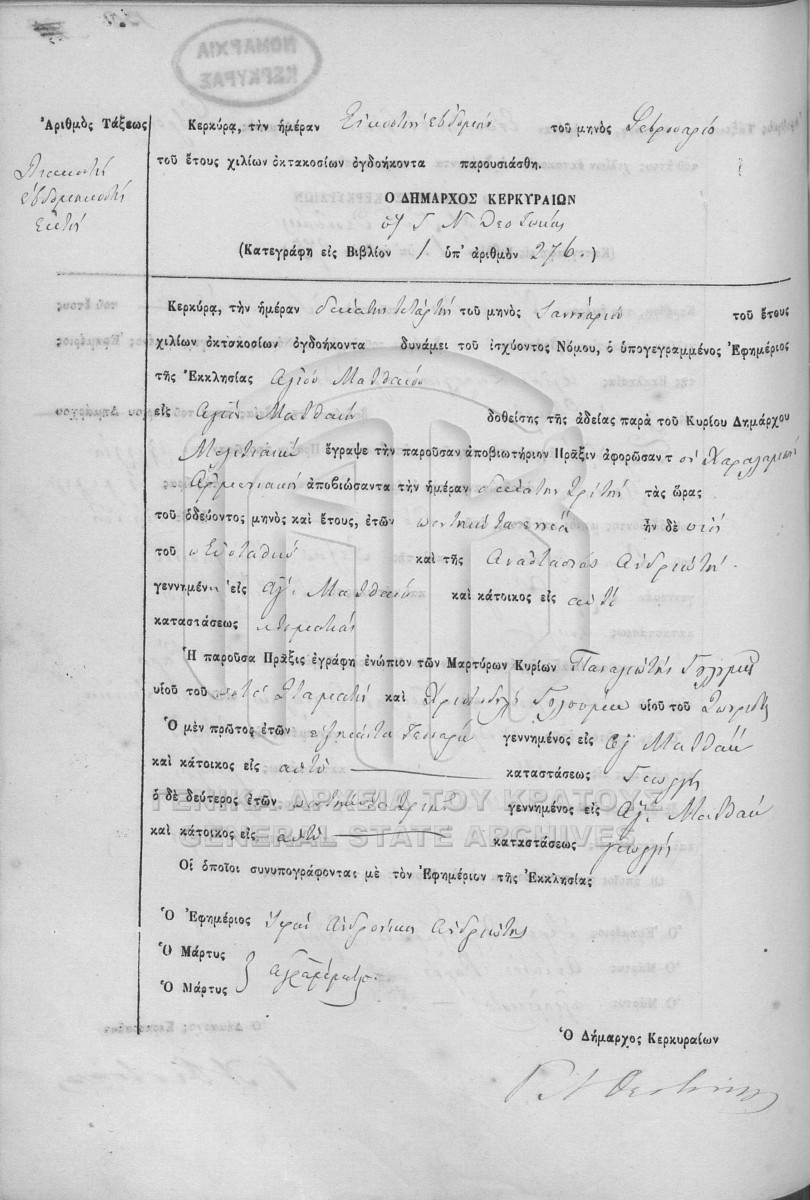 ΝΟΜΑΡΧΙΑ
ΚΕΡΚΥΡΑΣ
Ἀριθμὸς Τάξεως
Κερκύρᾳ, τὴν ἡμέραν Εἰκοστὴν ἑβδόμην τοῦ μηνὸς Φεβρουαρίου
τοῦ ἔτους χιλίων ὀκτακοσίων ὀγδοήκοντα παρουσιάσθη.
Διακοστὴ
ἑβδομηκοστὴ
ἕκτη
Ο ΔΗΜΑΡΧΟΣ ΚΕΡΚΥΡΑΙΩΝ
Γ Ν Θεοτόκης
(Κατεγράφη εἰς Βιβλίον 1 ὑπ' ἀριθμὸν 276.)
Κερκύρᾳ, τὴν ἡμέραν δεκάτην τετάρτην τοῦ μηνὸς Ἰαννουαρίου τοῦ ἔτους
χιλίων ὀκτακοσίων ὀγδοήκοντα δυνάμει τοῦ ἰσχύοντος Νόμου, ὁ ὑπογεγραμμένος Ἐφημέριος
τῆς Ἐκκλησίας Ἁγίου Ματθαίου
εἰς Ἅγιον Ματθαῖον δοθείσης τῆς ἀδείας παρὰ τοῦ Κυρίου Δημάρχου
Μελιτιαίων ἔγραψε τὴν παροῦσαν ἀποβιωτήριον Πρᾶξιν ἀφορῶσαν τὸν Χαραλάμπην
ἀποβιώσαντα τὴν ἡμέραν δεκάτην τρίτην τὰς ὥρας
τοῦ ὁδεύοντος μηνὸς καὶ ἔτους, ἐτῶν πεντήκοντα ἐννέα ἦν δὲ υἱὸς
τοῦ π Εὐσταθίου καὶ τῆς Ἀναστασίας Ἀνδριώτη.
γεννημένη εἰς Ἁγ. Ματθαῖον καὶ κάτοικος εἰς αὐτὸ
καταστάσεως κτηματίας
Ἡ παροῦσα Πρᾶξις ἐγράφη ἐνώπιον τῶν Μαρτύρων Κυρίων Παναγιώτης
υἱοῦ τοῦ ποτὲ Σταμάτη καὶ υἱοῦ τοῦ Σωτηρίου
Ὁ μὲν πρῶτος ἐτῶν ἑξήκοντα τεσσάρων γεννημένος εἰς Ἁγ Ματθαῖον
καὶ κάτοικος εἰς αὐτὸ καταστάσεως Γεωργὸς
ὁ δὲ δεύτερος ἐτῶν πεντήκοντα τριῶν γεννημένος εἰς Ἁγ. Ματθαῖον
καὶ κάτοικος εἰς αὐτὸ καταστάσεως γεωργὸς
Οἱ ὁποῖοι συνυπογράφονται μὲ τὸν Ἐφημέριον τῆς Ἐκκλησίας
Ὁ Ἐφημέριος Ἱερεὺς Ἀνδρόνικος Ἀνδριώτης
Ὁ Μάρτυς
Ὁ Μάρτυς ἀγράμματοι
Ὁ Δήμαρχος Κερκυραίων
Γ Ν Θεοτόκης
ΓΕΝΙΚΑ ΑΡΧΕΙΑ ΤΟΥ ΚΡΑΤΟΥΣ
GENERAL STATE ARCHIVES